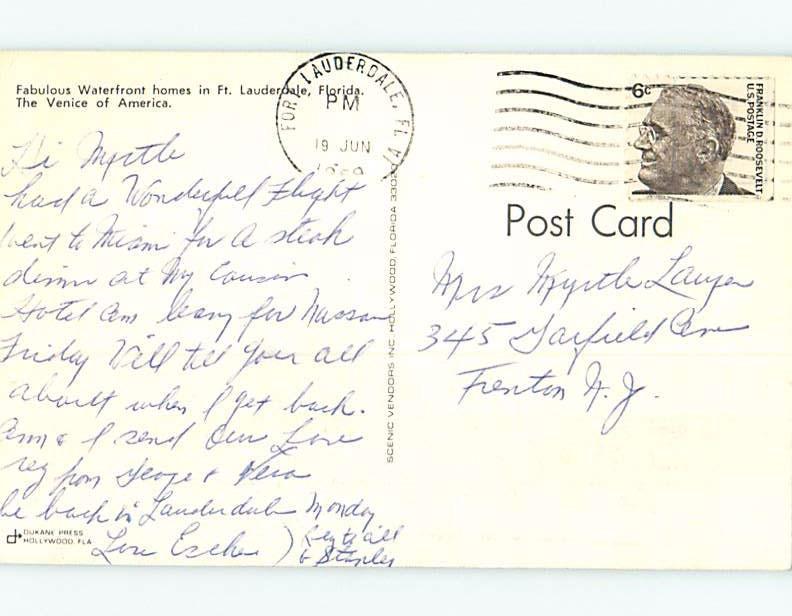 Fabulous Waterfront homes in Ft. Lauderdale, Florida.
The Venice of America.
FORT LAUDERDALE, FL
PM
19 JUN
6c
FRANKLIN D. ROOSEVELT
U.S. POSTAGE
Post Card
Hi Myrtle
had a Wonderfull Flight
went to Miami for a steak
dinner at My Cousin
Hotel am leavy for Nassau
Friday Will tell you all
aboult when I get back.
Ann & I send Our Love
reg from George & Vera
be back in Lauderdale Monday
Love
) Reg to all
& Stanley
Mrs Myrtle
345 Garfield Ave
Trenton N. J.
SCENIC VENDORS INC. HOLLYWOOD, FLORIDA
DUKANE PRESS
HOLLYWOOD, FLA